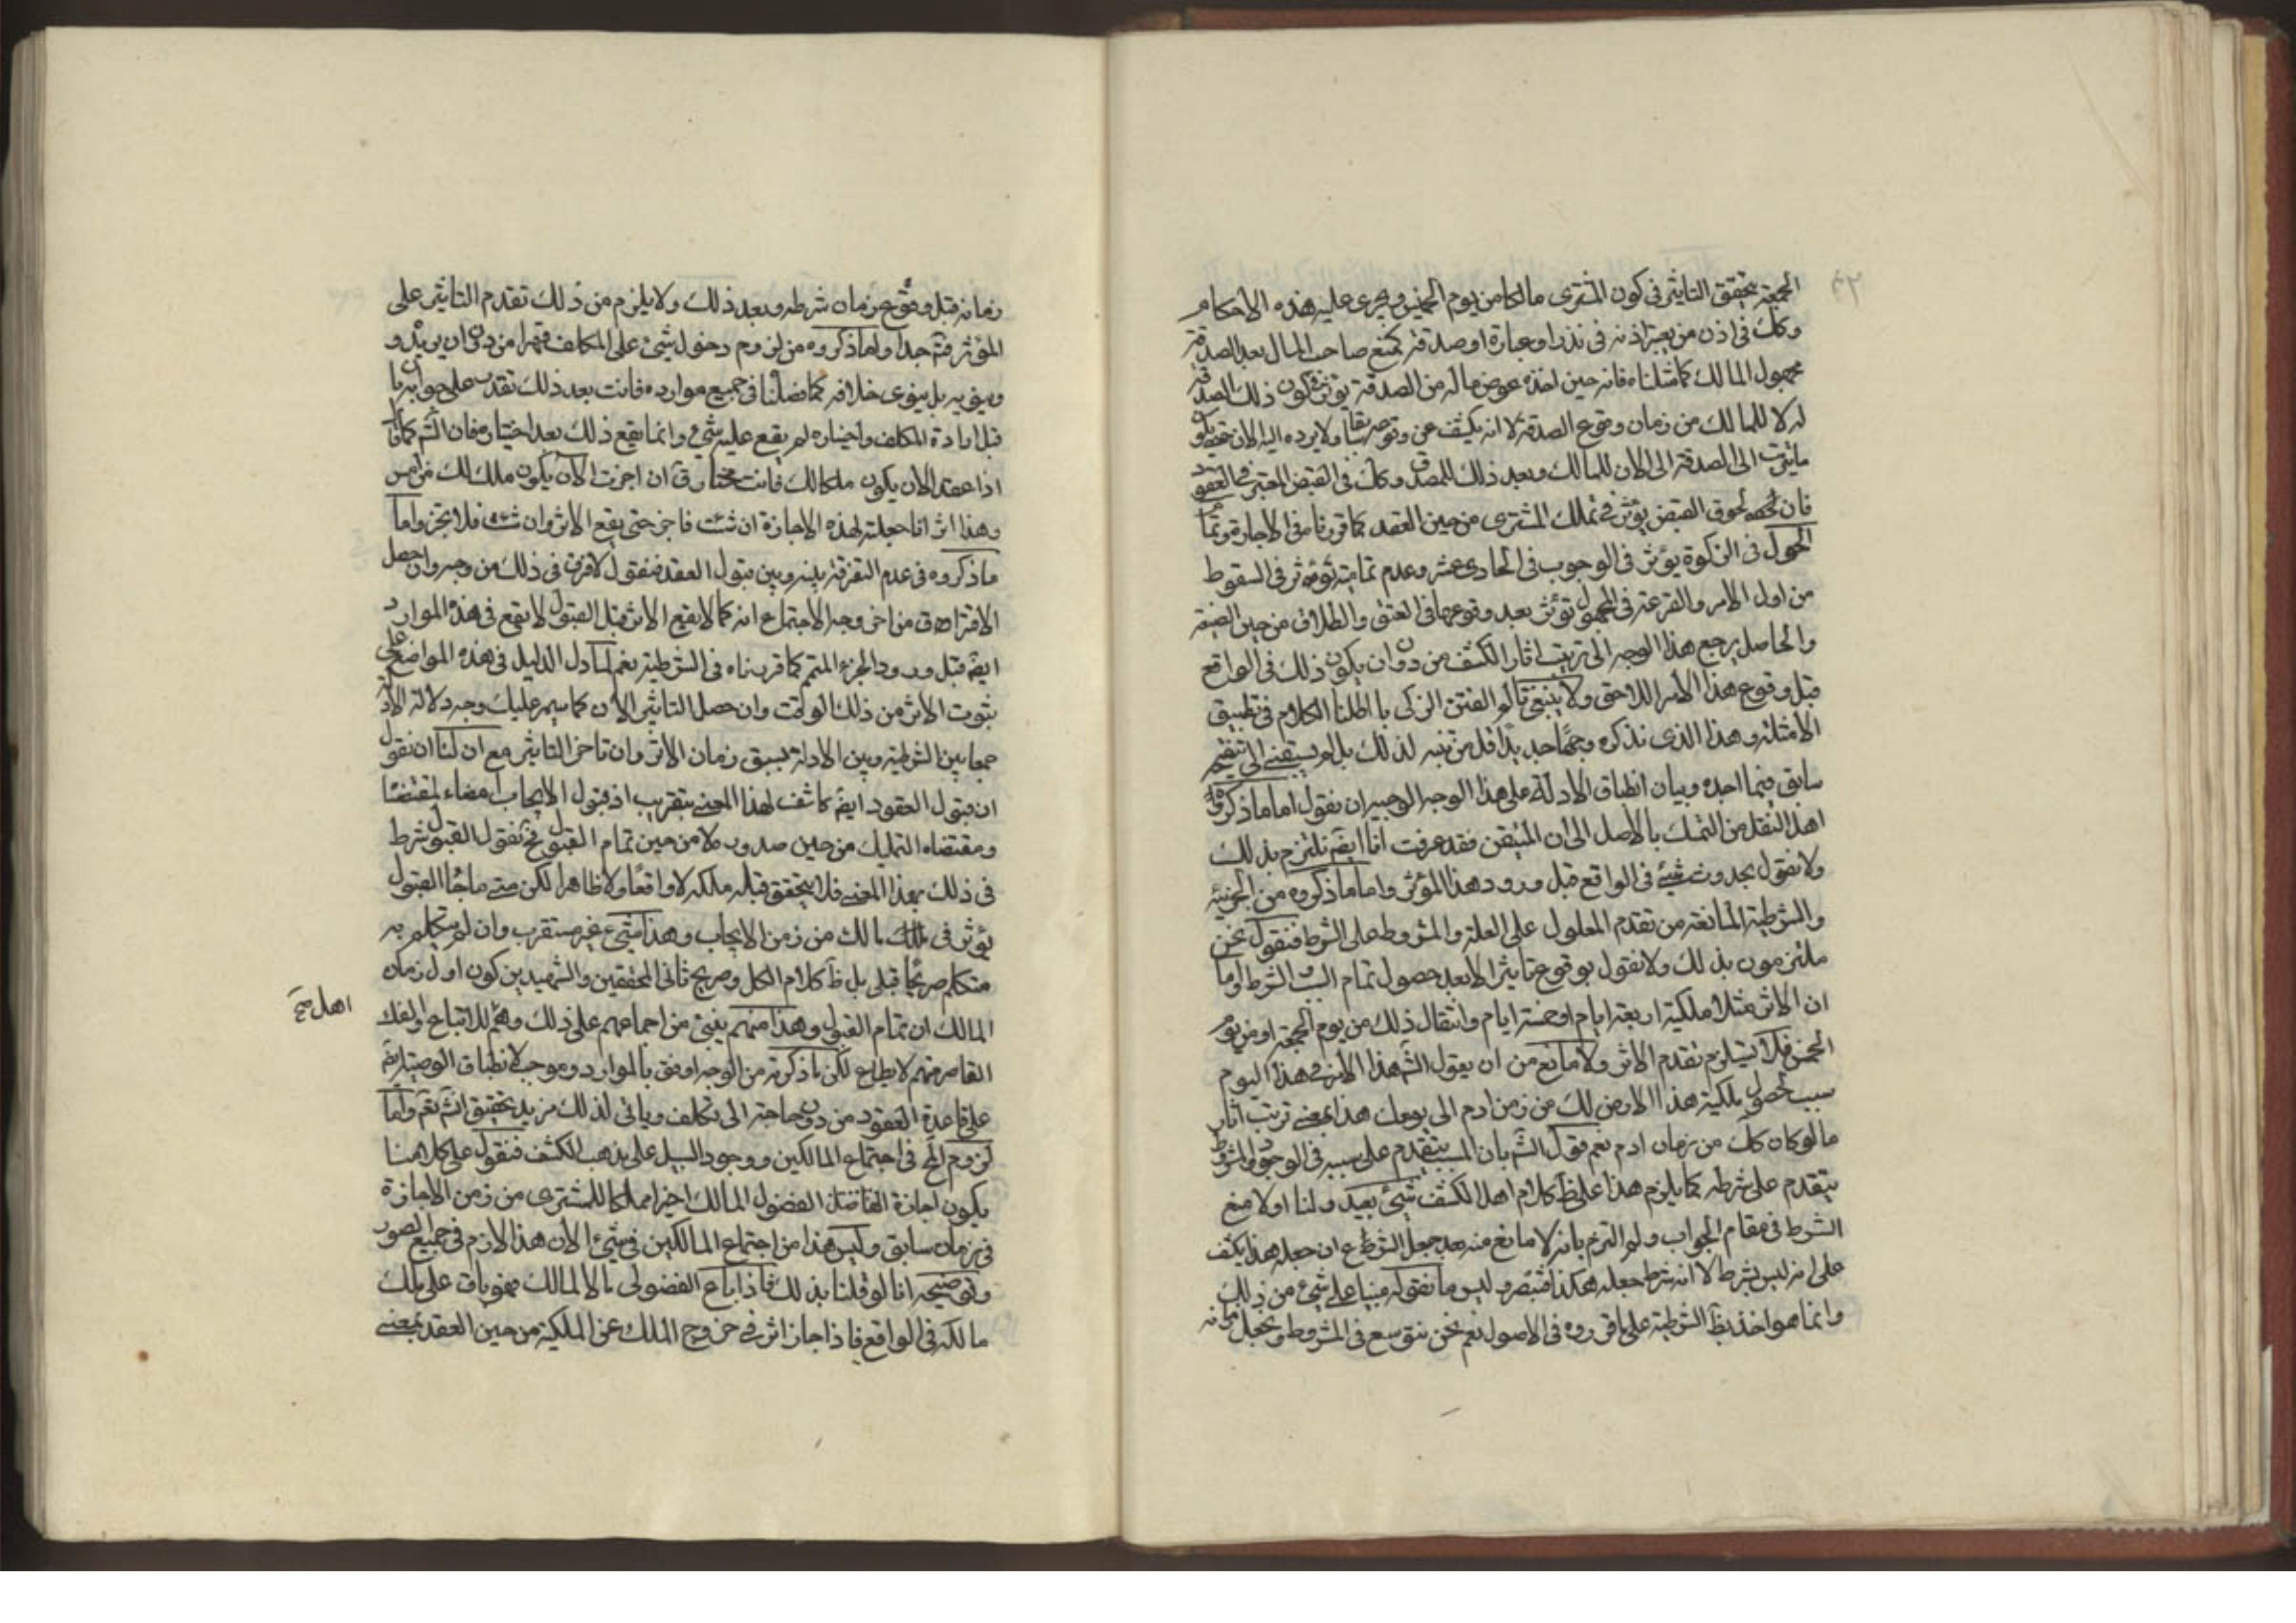 ٤٢
الجمعة يتحقق التاثير فى كون المشترى مالكا من يوم الخميس ويجرى عليه هذه الاحكام
وكك فى اذن من يعتبر اذنه فى نذر او عبارة او صدقة كمتع صاحب المال بعد الصدقة
مجهول المالك كما مثلناه فانه حين اخذه عوض ماله من الصدقة يؤثر فى كون ذلك الصدقة
له لا للمالك من زمان وقوع الصدقة لا انه يكشف عن وقوعه سابقا ولا يرده اليه الان
ما يترتب الى الصدقة الى الان للمالك وبعد ذلك للمصدق وكك فى القبض المعتبر فى العقود
فان لحوق القبض يؤثر فى تملك المشترى من حين العقد كما قررنا فى الاجازة وتمام
الحول فى الزكوة يؤثر فى الوجوب فى الحادى عشر وعدم تماميته تؤثر فى السقوط
من اول الامر والقرعة فى المجهول تؤثر بعد وقوعها فى العتق والطلاق من حين الصيغة
والحاصل يرجع هذا الوجه الى ترتيب اثار الكشف من دون ان يكون ذلك فى الواقع
قبل وقوع هذا الامر اللاحق ولا ينبغى تألم الفتن الزكى بااطلنا الكلام فى تطبيق
الامثلة وهذا الذى نذكره وجها جديدا قل من تنبه لذلك بل لم يسبقنى اليه فقيه
سابق فيما اجده وبيان انطباق الادلة على هذا الوجه الوجيه ان نقول اما ما ذكروه
اهل النقل من التمسك بالاصل الى ان المتيقن فقد عرفت انا ايضا نلتزم بذلك
ولا نقول بحدوث شيئ فى الواقع قبل ورود هذا المؤثر واما ما ذكروه من الجزئية
والشرطية المانعة من تقدم المعلول على العلة والمشروط على الشرط فنقول نحن
ملتزمون بذلك ولا نقول بوقوع تاثير الا بعد حصول تمام السبب الشرط واما
ان الاثر مثلا ملكية اربعة ايام او خمسة ايام وانتقال ذلك من يوم الجمعة او من يوم
الخميس فلا يستلزم تقدم الاثر ولا مانع من ان يقول الشه هذا الامر فى هذا اليوم
سبب لحصول ملكية هذا الارض لك من زمن ادم الى يومك هذا بمعنى ترتب اثار
ما لو كان كك من زمان ادم نعم قول الشه بان المسبب يتقدم على سببه فى الوجود والمشروط
يتقدم على شرطه كما يلزم هذا على ظ كلام اهل الكشف شيئ بعيد ولنا اولا منع
الشرط فى مقام الجواب ولو التزم بانه لا مانع منه بعد جعل الشرع ان جعله هذا يكشف
على انه ليس بشرط لا انه شرط جعله هكذا فتبصر وليس ما نقوله مبنيا على شيئ من ذلك
وانما هو اخذ بظ الشرطية على ما قرروه فى الاصول نعم نحن نتوسع فى المشروط ونجعل زمانه
زمانه قبل وقوع زمان شرطه وبعد ذلك ولا يلزم من ذلك تقدم التاثير على
المؤثر فته جدا واما ما ذكروه من لزوم دخول شيئ على المكلف قهرا من دون ان يريد و
وينويه بل ينوى خلافه كما فصلنا فى جميع موارده فانت بعد ذلك تقدر على جوابه بان
قبل ارادة المكلف واختياره لم يقع عليه شيئ وانما يقع ذلك بعد اختياره فان الشه كما قال
اذا عقد الان يكون ملكا لك فانت مختار ق ان اجزت الان يكون ملك لك من امس
وهذا اثر انا جعلته لهذه الاجازة ان شئت فاجز حتى يقع الاثر وان شئت فلا تجز واما
ما ذكروه فى عدم التفرقة بينه وبين قبول العقد فنقول لا فرق فى ذلك من وجه وان حصل
الافتراق من اخر وجه الاجتماع انه كما لا يقع الاثر قبل القبول لا يقع فى هذه الموارد
ايضا قبل ورود الجزء المتمم كما قررناه فى الشرطية نعم لما دل الدليل فى هذه المواضع على
ثبوت الاثر من ذلك الوقت وان حصل التاثير الان كما سيمر عليك وجه دلالة الادلة
جمعا بين الشرطية وبين الادلة بسبق زمان الاثر وان تاخر التاثير مع ان لنا ان نقول
ان قبول العقود ايضا كاشف لهذا المعنى بتقريب اذ قبول الايجاب امضاء لمقتضاه
ومقتضاه التمليك من حين صدوره لا من حين تمام القبول فح نقول القبول شرط
فى ذلك بهذا المعنى فلا يتحقق قبله ملكه لا واقعا ولا ظاهرا لكن متى ما جاء القبول
يؤثر فى ملك مالك من زمن الايجاب وهذا شيئ غير مستقرب وان لم يتكلم به
متكلم صريحا قبلى بل ظ كلام الكل وصريح ثانى المحققين والشهيدين كون اول زمان
المالك ان تمام القبول وهذا منهم ينبئ من اجماعهم على ذلك وهم للاتباع اولفك
اهل صح
القاصر منهم لا يطاع لكن ما ذكرته من الوجه اوفق بالموارد وموجب لانطباق الوصية ايضا
على قاعدة العقود من دون حاجة الى تكلف وياتى لذلك مزيد تحقيق انشه تعم واما
لزوم المح فى اجتماع المالكين ووجود السبيل على مذهب الكشف فنقول على كلامنا
يكون اجازة الفاضل الفضول المالك اخيرا مملكا للمشترى من زمن الاجازة
فى زمان سابق وليس هذا من اجتماع المالكين فى شيئ الان هذا لازم فى جميع الصور
وتوضيحه انا لو قلنا بذلك فاذا باع الفضولى مالا لمالك فهو باق على ملك
مالكه فى الواقع فاذا جاز اثر فى خروج الملك عن الملكية من حين العقد بمعنى